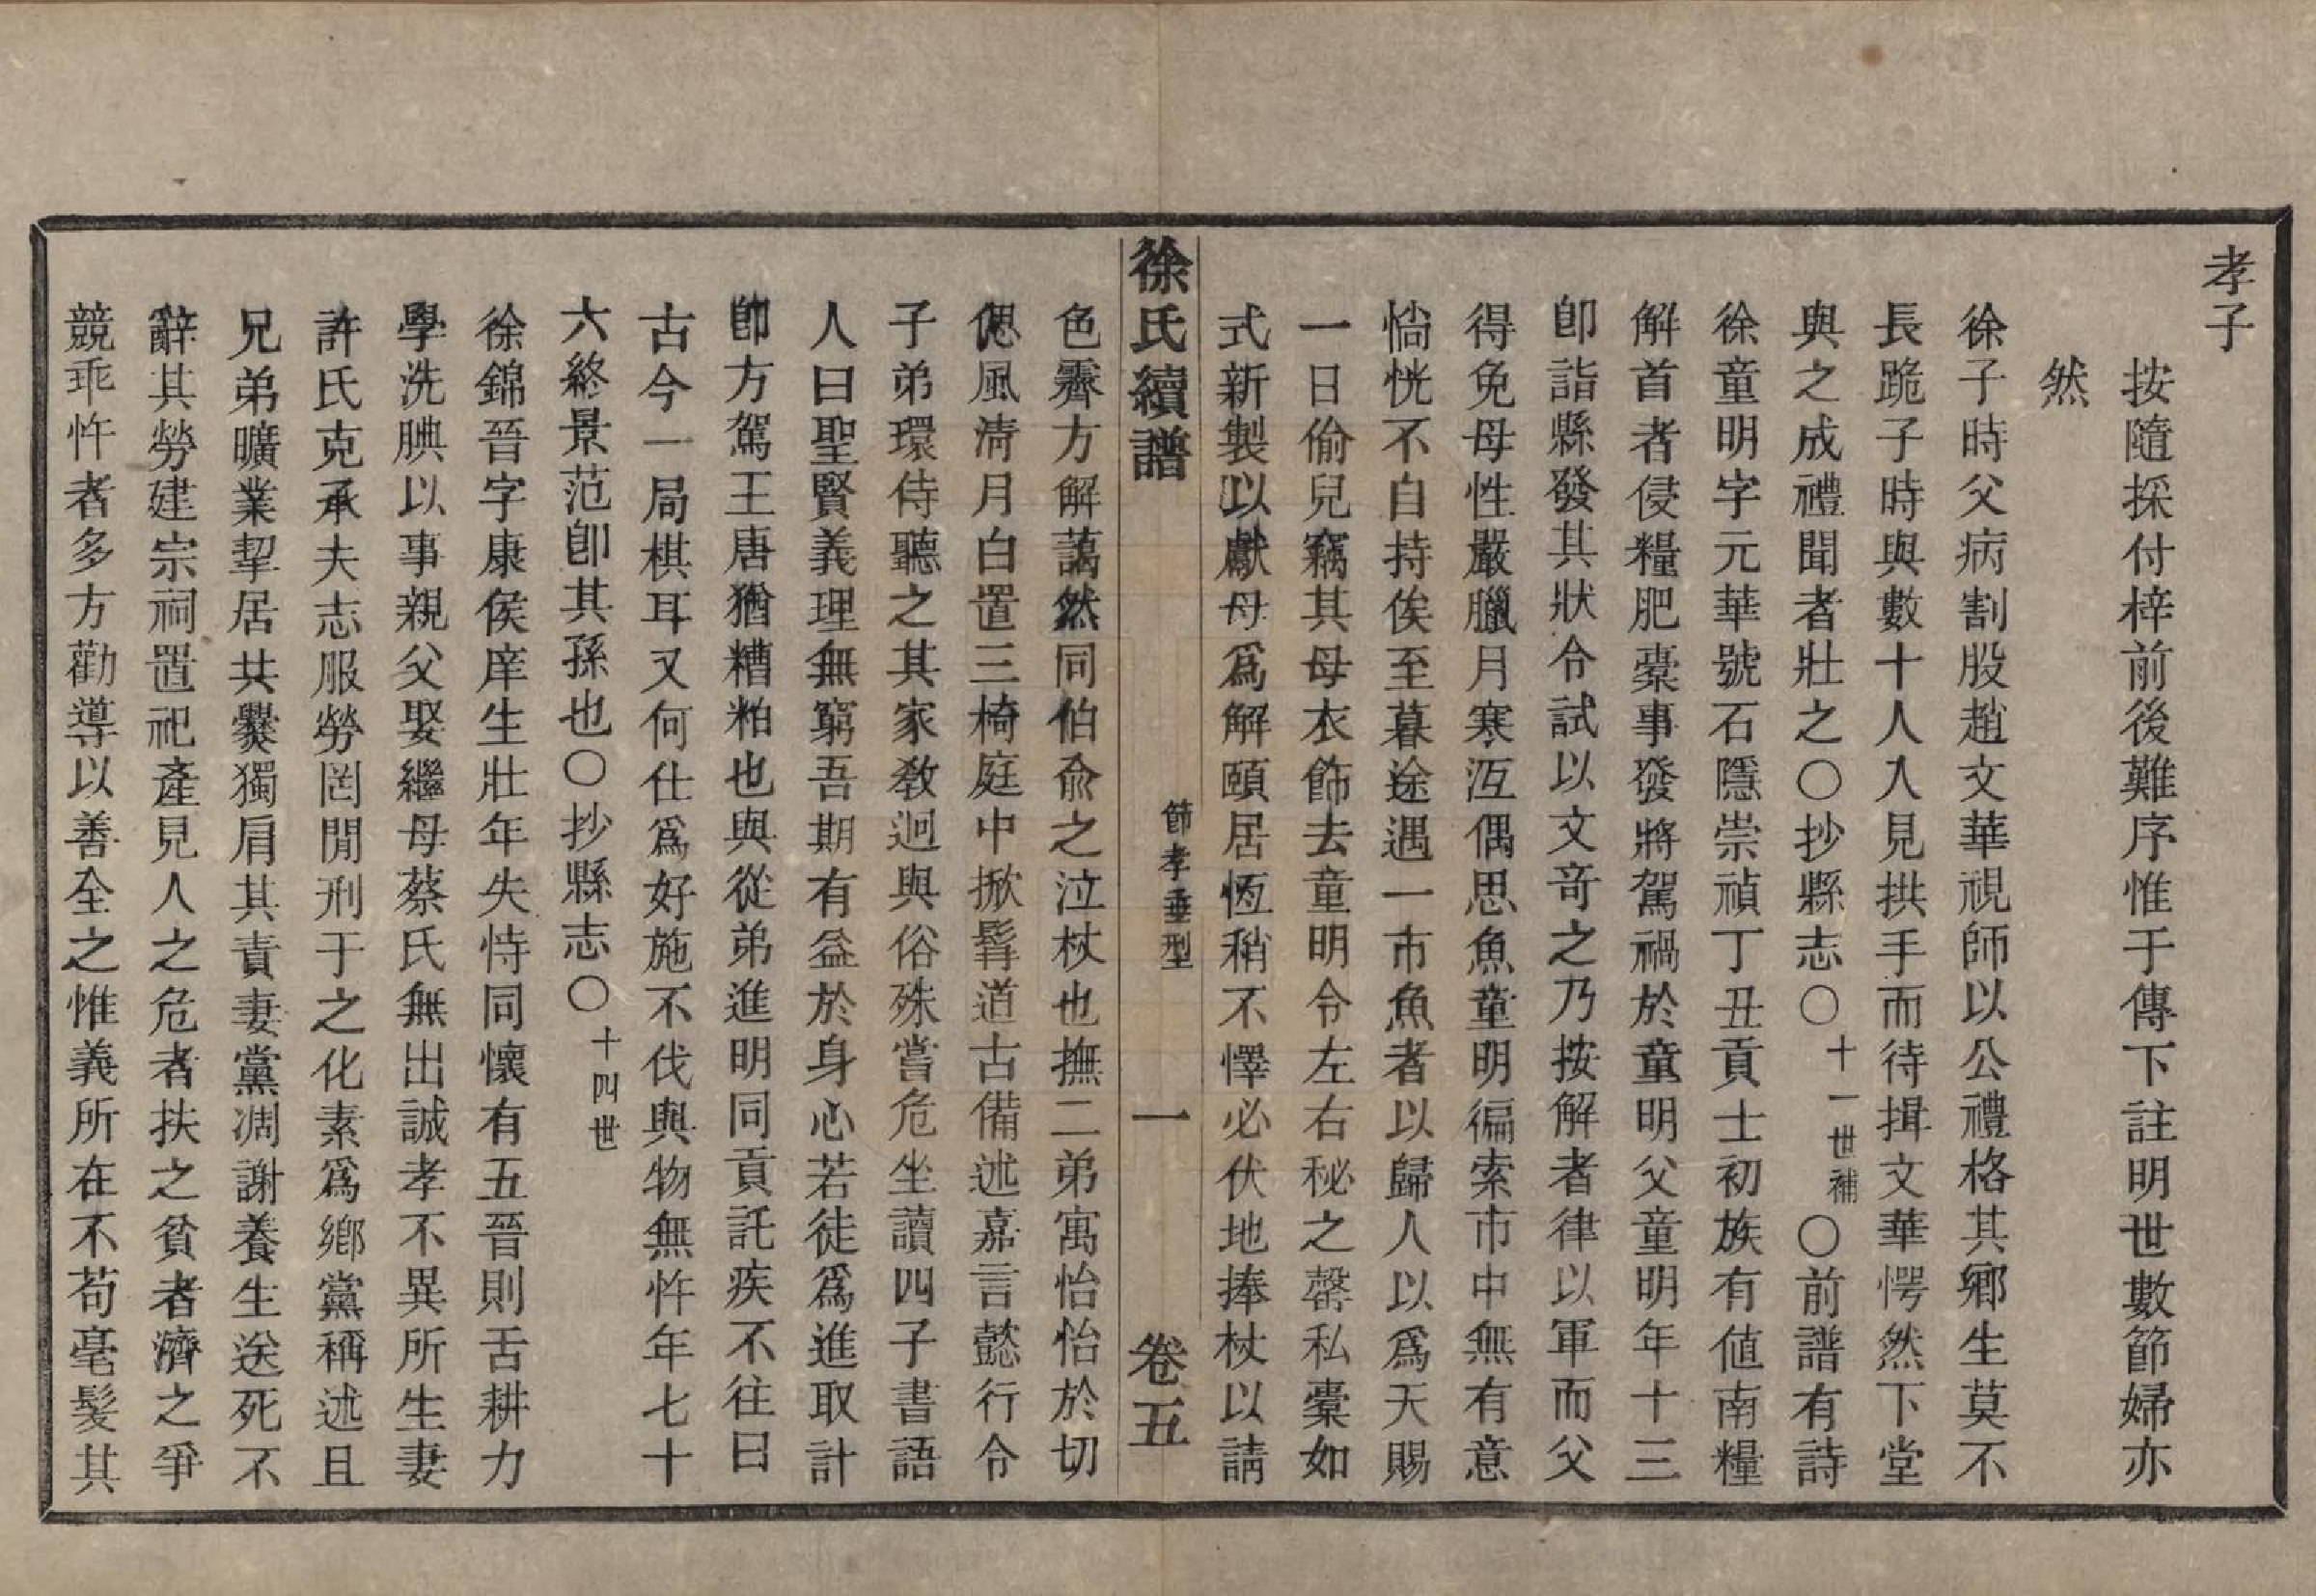 孝子
按隨採付梓前後難序惟于傳下註明世數節婦亦
然
徐子時父病割股趙文華視師以公禮格其鄉生莫不
長跪子時與數十人人見拱手而待揖文華愕然下堂
與之成禮聞者壯之〇抄縣志〇十一世補〇前譜有詩
徐童明字元華號石隱崇禎丁丑貢士初族有値南糧
解首者侵糧肥橐事發將駕禍於童明父童明年十三
卽詣縣發其狀令試以文奇之乃按解者律以軍而父
得免母性嚴臘月寒沍偶思魚童明徧索市中無有意
惝恍不自持俟至暮途遇一市魚者以歸人以爲天賜
一日偷兒竊其母衣飾去童明令左右秘之罄私橐如
式新製以獻母爲解頤居恆稍不懌必伏地捧杖以請
徐氏續譜 節孝垂型 一 卷五
色霽方解藹然同伯兪之泣杖也撫二弟寓怡怡於切
偲風淸月白置三椅庭中掀髯道古備述嘉言懿行令
子弟環侍聽之其家敎迥與俗殊嘗危坐讀四子書語
人曰聖賢義理無窮吾期有益於身心若徒爲進取計
卽方駕王唐猶糟粕也與從弟進明同貢託疾不往曰
古今一局棋耳又何仕爲好施不伐與物無忤年七十
六終景范卽其孫也〇抄縣志〇十四世
徐錦晉字康侯庠生壯年失恃同懷有五晉則舌耕力
學洗腆以事親父娶繼母蔡氏無出誠孝不異所生妻
許氏克承夫志服勞罔閒刑于之化素爲鄕黨稱述且
兄弟曠業挈居共爨獨肩其責妻黨凋謝養生送死不
辭其勞建宗祠置祀產見人之危者扶之貧者濟之爭
競乖忤者多方勸導以善全之惟義所在不苟毫髮其